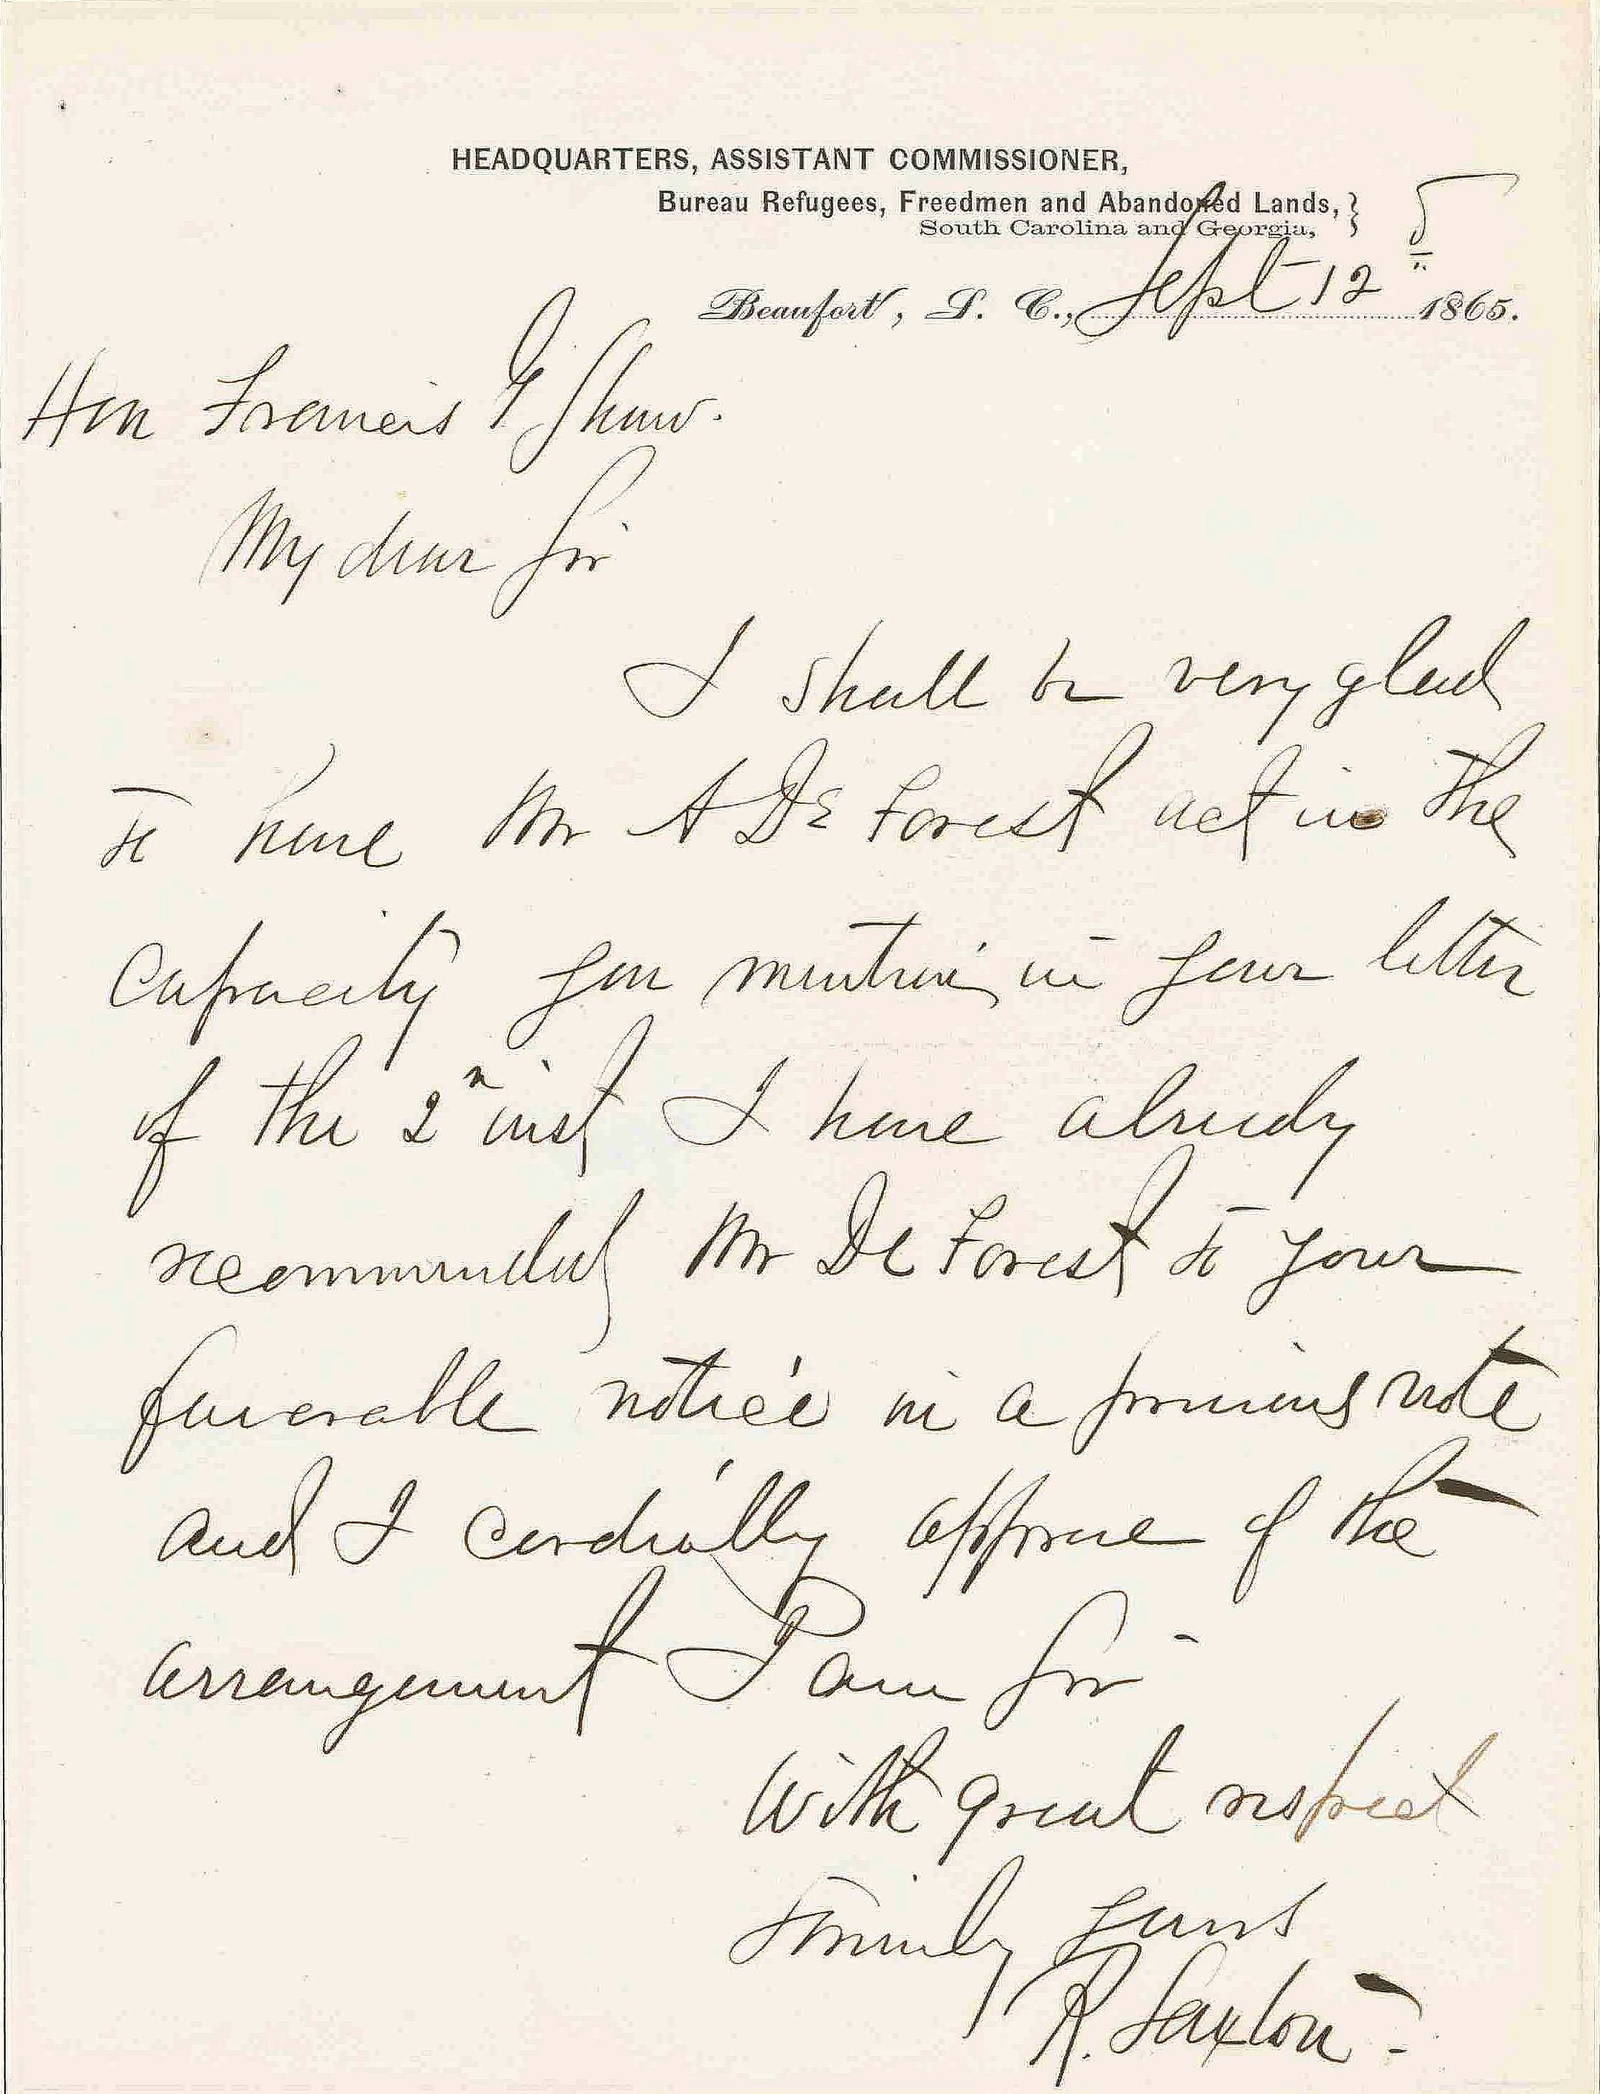 HEADQUARTERS, ASSISTANT COMMISSIONER,
Bureau Refugees, Freedmen and Abandoned Lands, }
South Carolina and Georgia,
Beaufort, S. C., Sept 12 th 1865.
Hon Francis G Shaw.
My dear Sir
I shall be very glad
to have Mr A De Forest act in the
capacity you mention in your letter
of the 2n inst I have already
recommended Mr De Forest to your
favorable notice in a previous note
and I cordially approve of the
arrangement I am Sir
With great respect
Sincerely yours
R. Saxton -